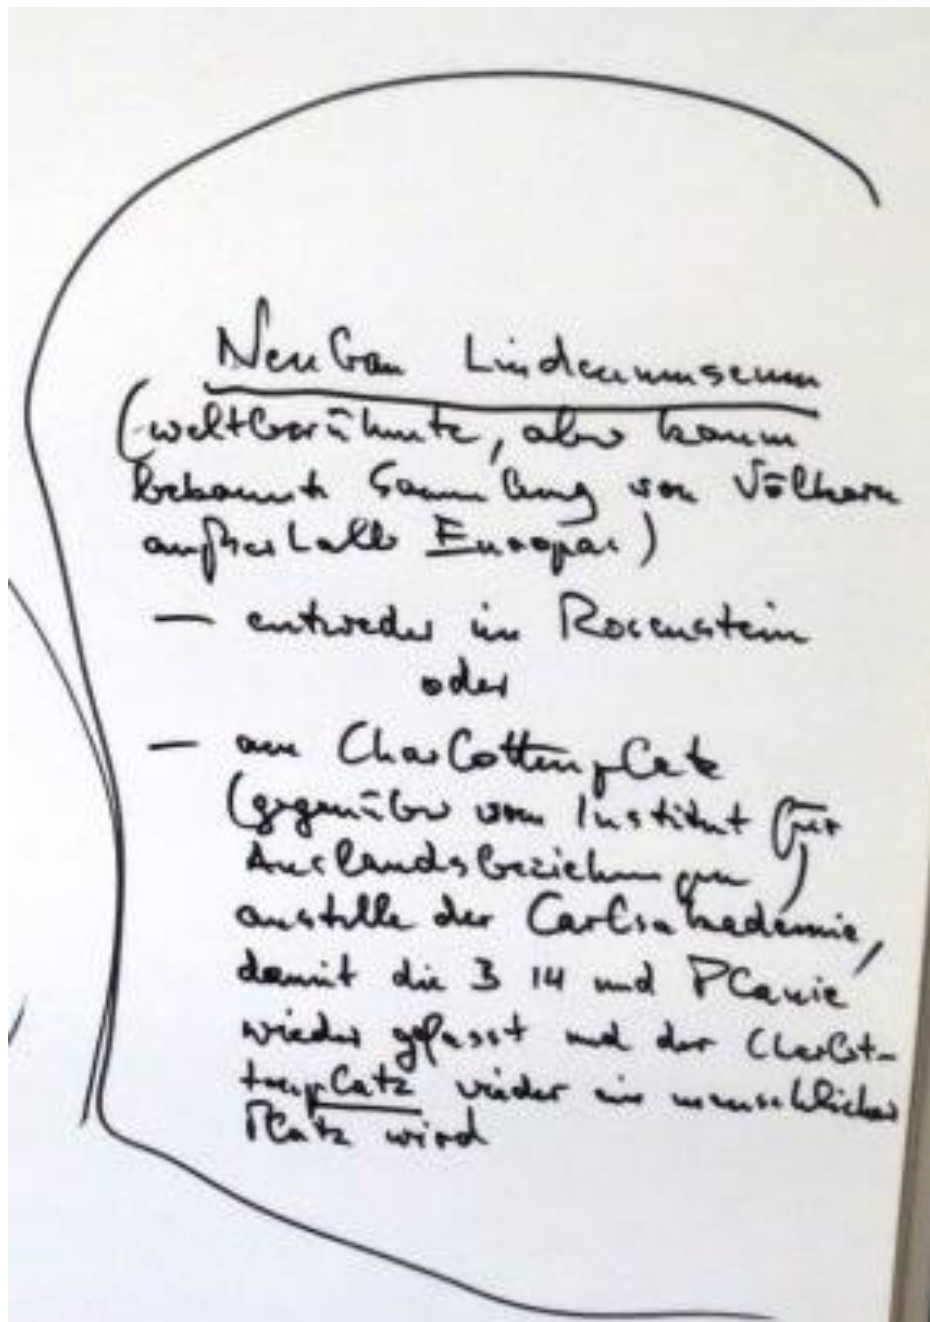 Neubau Lindenmuseum
(weltberühmte, aber kaum
bekannte Sammlung von Völkern
außerhalb Europas)
— entweder im Rosenstein
oder
— am Charlottenplatz
(gegenüber vom Institut für
Auslandsbeziehungen)
anstelle der Carlsakademie,
damit die B 14 und Planie
wieder gefasst und der Charlot-
tenplatz wieder ein menschlicher
Platz wird